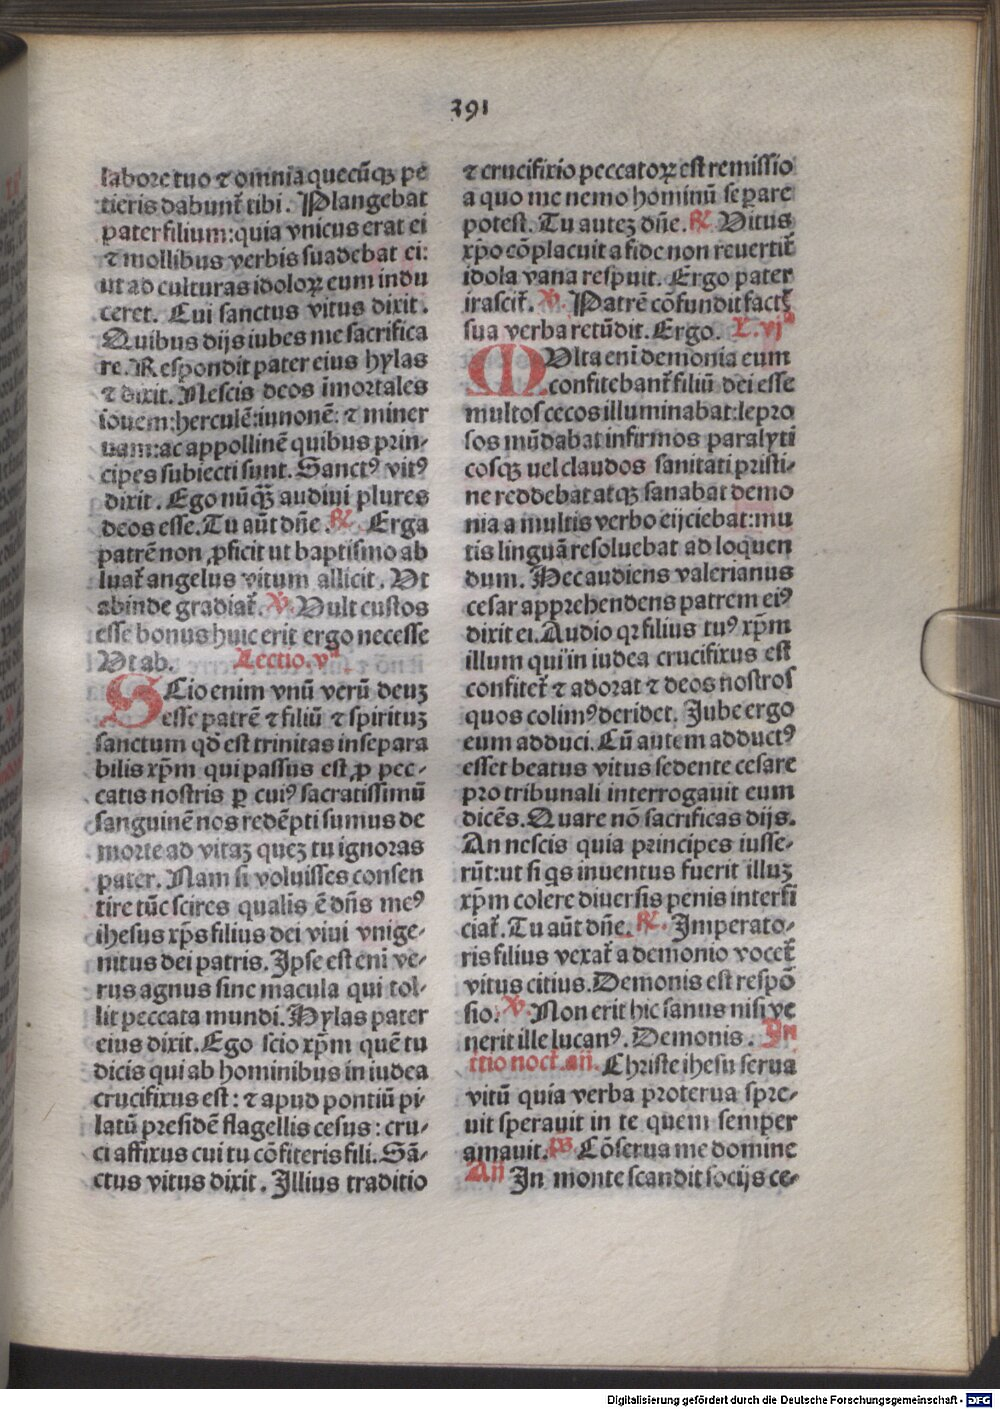 391
labore tuo ⁊ omnia quecūqꝫ pe
tieris dabunt᷑ tibi. Plangebat
pater filium:quia vnicus erat ei
⁊ mollibus verbis suadebat ei:
ut ad culturas idoloꝝ eum indu
ceret. Cui sanctus vitus dixit.
Quibus dijs iubes me sacrifica
re. Respondit pater eius hylas
⁊ dixit. Nescis deos īmortales
iouem:herculē:iunonē: ⁊ miner
uam:ac appollinē quibus prin-
cipes subiecti sunt. Sanctꝰ vitꝰ
dixit. Ego nūqꝫ̄ audiui plures
deos esse. Tu aūt dn̄e. ℟ Erga
patrē non ꝓficit ut baptismo ab
luat᷑ angelus vitum allicit. Vt
abinde gradiat᷑. ℣. Vult custos
esse bonus huic erit ergo necesse
Vt ab. Lectio. vᵃ
SCio enim vnū verū deuꝫ
esse patrē ⁊ filiū ⁊ spirituꝫ
sanctum qd̄ est trinitas insepara
bilis xp̄m qui passus est ꝓ pec-
catis nostris ꝑ cuiꝰ sacratissimū
sanguinē nos redēpti sumus de
morte ad vitaꝫ queꝫ tu ignoras
pater. Nam si voluisses consen
tire tūc scires qualis ē dn̄s meꝰ
ihesus xp̄s filius dei viui vnige-
nitus dei patris. Ipse est eni ve-
rus agnus sine macula qui tol-
lit peccata mundi. Hylas pater
eius dixit. Ego scio xp̄m quē tu
dicis qui ab hominibus in iudea
crucifixus est: ⁊ apud pontiū pi-
latū presidē flagellis cesus: cru-
ci affixus cui tu cōfiteris fili. Sā-
ctus vitus dixit. Illius traditio
⁊ crucifixio peccatoꝝ est remissio
a quo me nemo hominū seꝑare
potest. Tu auteꝫ dn̄e. ℟ Vitus
xp̄o cōplacuit a fide non reuertit᷑
idola vana respuit. Ergo pater
irascit᷑. ℣. Patrē cōfundit fact᷑
sua verba retūdit. Ergo. L. vjᵃ
MVlta eni demonia eum
confitebant᷑ filiū dei esse
multos cecos illuminabat:lepro
sos mūdabat infirmos paralyti
cosqꝫ uel claudos sanitati pristi-
ne reddebat atqꝫ sanabat demo
nia a multis verbo eijciebat:mu
tis linguā resoluebat ad loquen
dum. Hec audiens valerianus
cesar apprehendens patrem eiꝰ
dixit ei. Audio qꝛ filius tuꝰ xp̄m
illum qui in iudea crucifixus est
confitet᷑ ⁊ adorat ⁊ deos nostros
quos colimꝰ deridet. Iube ergo
eum adduci. Cū autem adductꝰ
esset beatus vitus sedente cesare
pro tribunali interrogauit eum
dicēs. Quare nō sacrificas dijs.
An nescis quia principes iusse-
rūt:ut si qs inuentus fuerit illuꝫ
xp̄m colere diuersis penis interfi
ciat᷑. Tu aūt dn̄e. ℟. Imperato-
ris filius vexat᷑ a demonio vocet᷑
vitus citius. Demonis est respō
sio. ℣. Non erit hic sanus nisi ve
nerit ille lucanꝰ. Demonis. In
ttio noct. an̄. Christe ihesu serua
vitū quia verba proterua spre-
uit sperauit in te quem semper
amauit. ps Cōserua me domine
An̄ In monte scandit socijs ce-
Digitalisierung gefördert durch die Deutsche Forschungsgemeinschaft - DFG